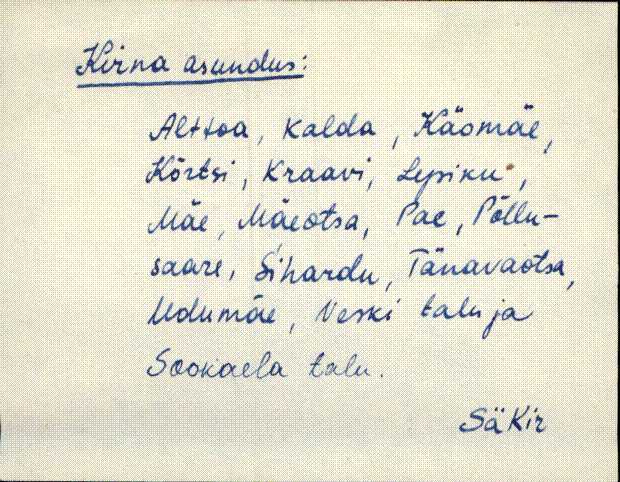 Kirna asundus:
Alttoa, Kalda, Käomäe,
Kõrtsi, Kraavi, Lepiku,
Mäe, Mäeotsa, Pae, Põllu-
saare, Sihardu, Tänavaotsa,
Udumäe, Veski talu ja
Sookaela talu.
SäKir